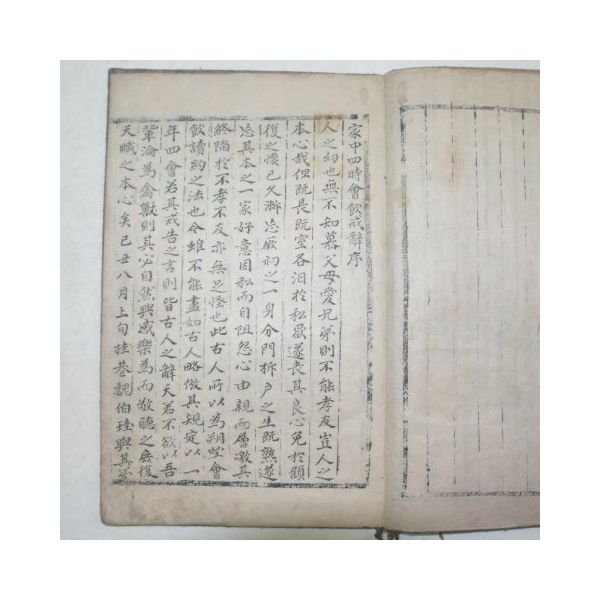 家中四時會飮戒辭序
人之幼也無不知慕父母愛兄弟則不能孝友豈人之
本心哉但旣長旣室各汨於私慾遂喪其良心免於顧
復之懷已久漸忘厥初之一身分門柝戶之生旣熟遂
忘其本之一家好意因私而自阻怨心由親而層激其
終陷於不孝不友亦無足怪也此古人所以為朔望會
飮讀約之法也今雖不能盡如古人略倣其規定以一
年四會若其戒告之言則皆古人之辭夫若不欲以吾
輩淪為禽獸則其必自然興感樂為而敬聽之庶復
天賊之本心矣己丑八月上旬桂巷魏伯珪與其弟